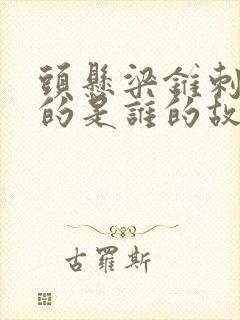 頭懸梁錐刺
的是誰的故
古羅斯